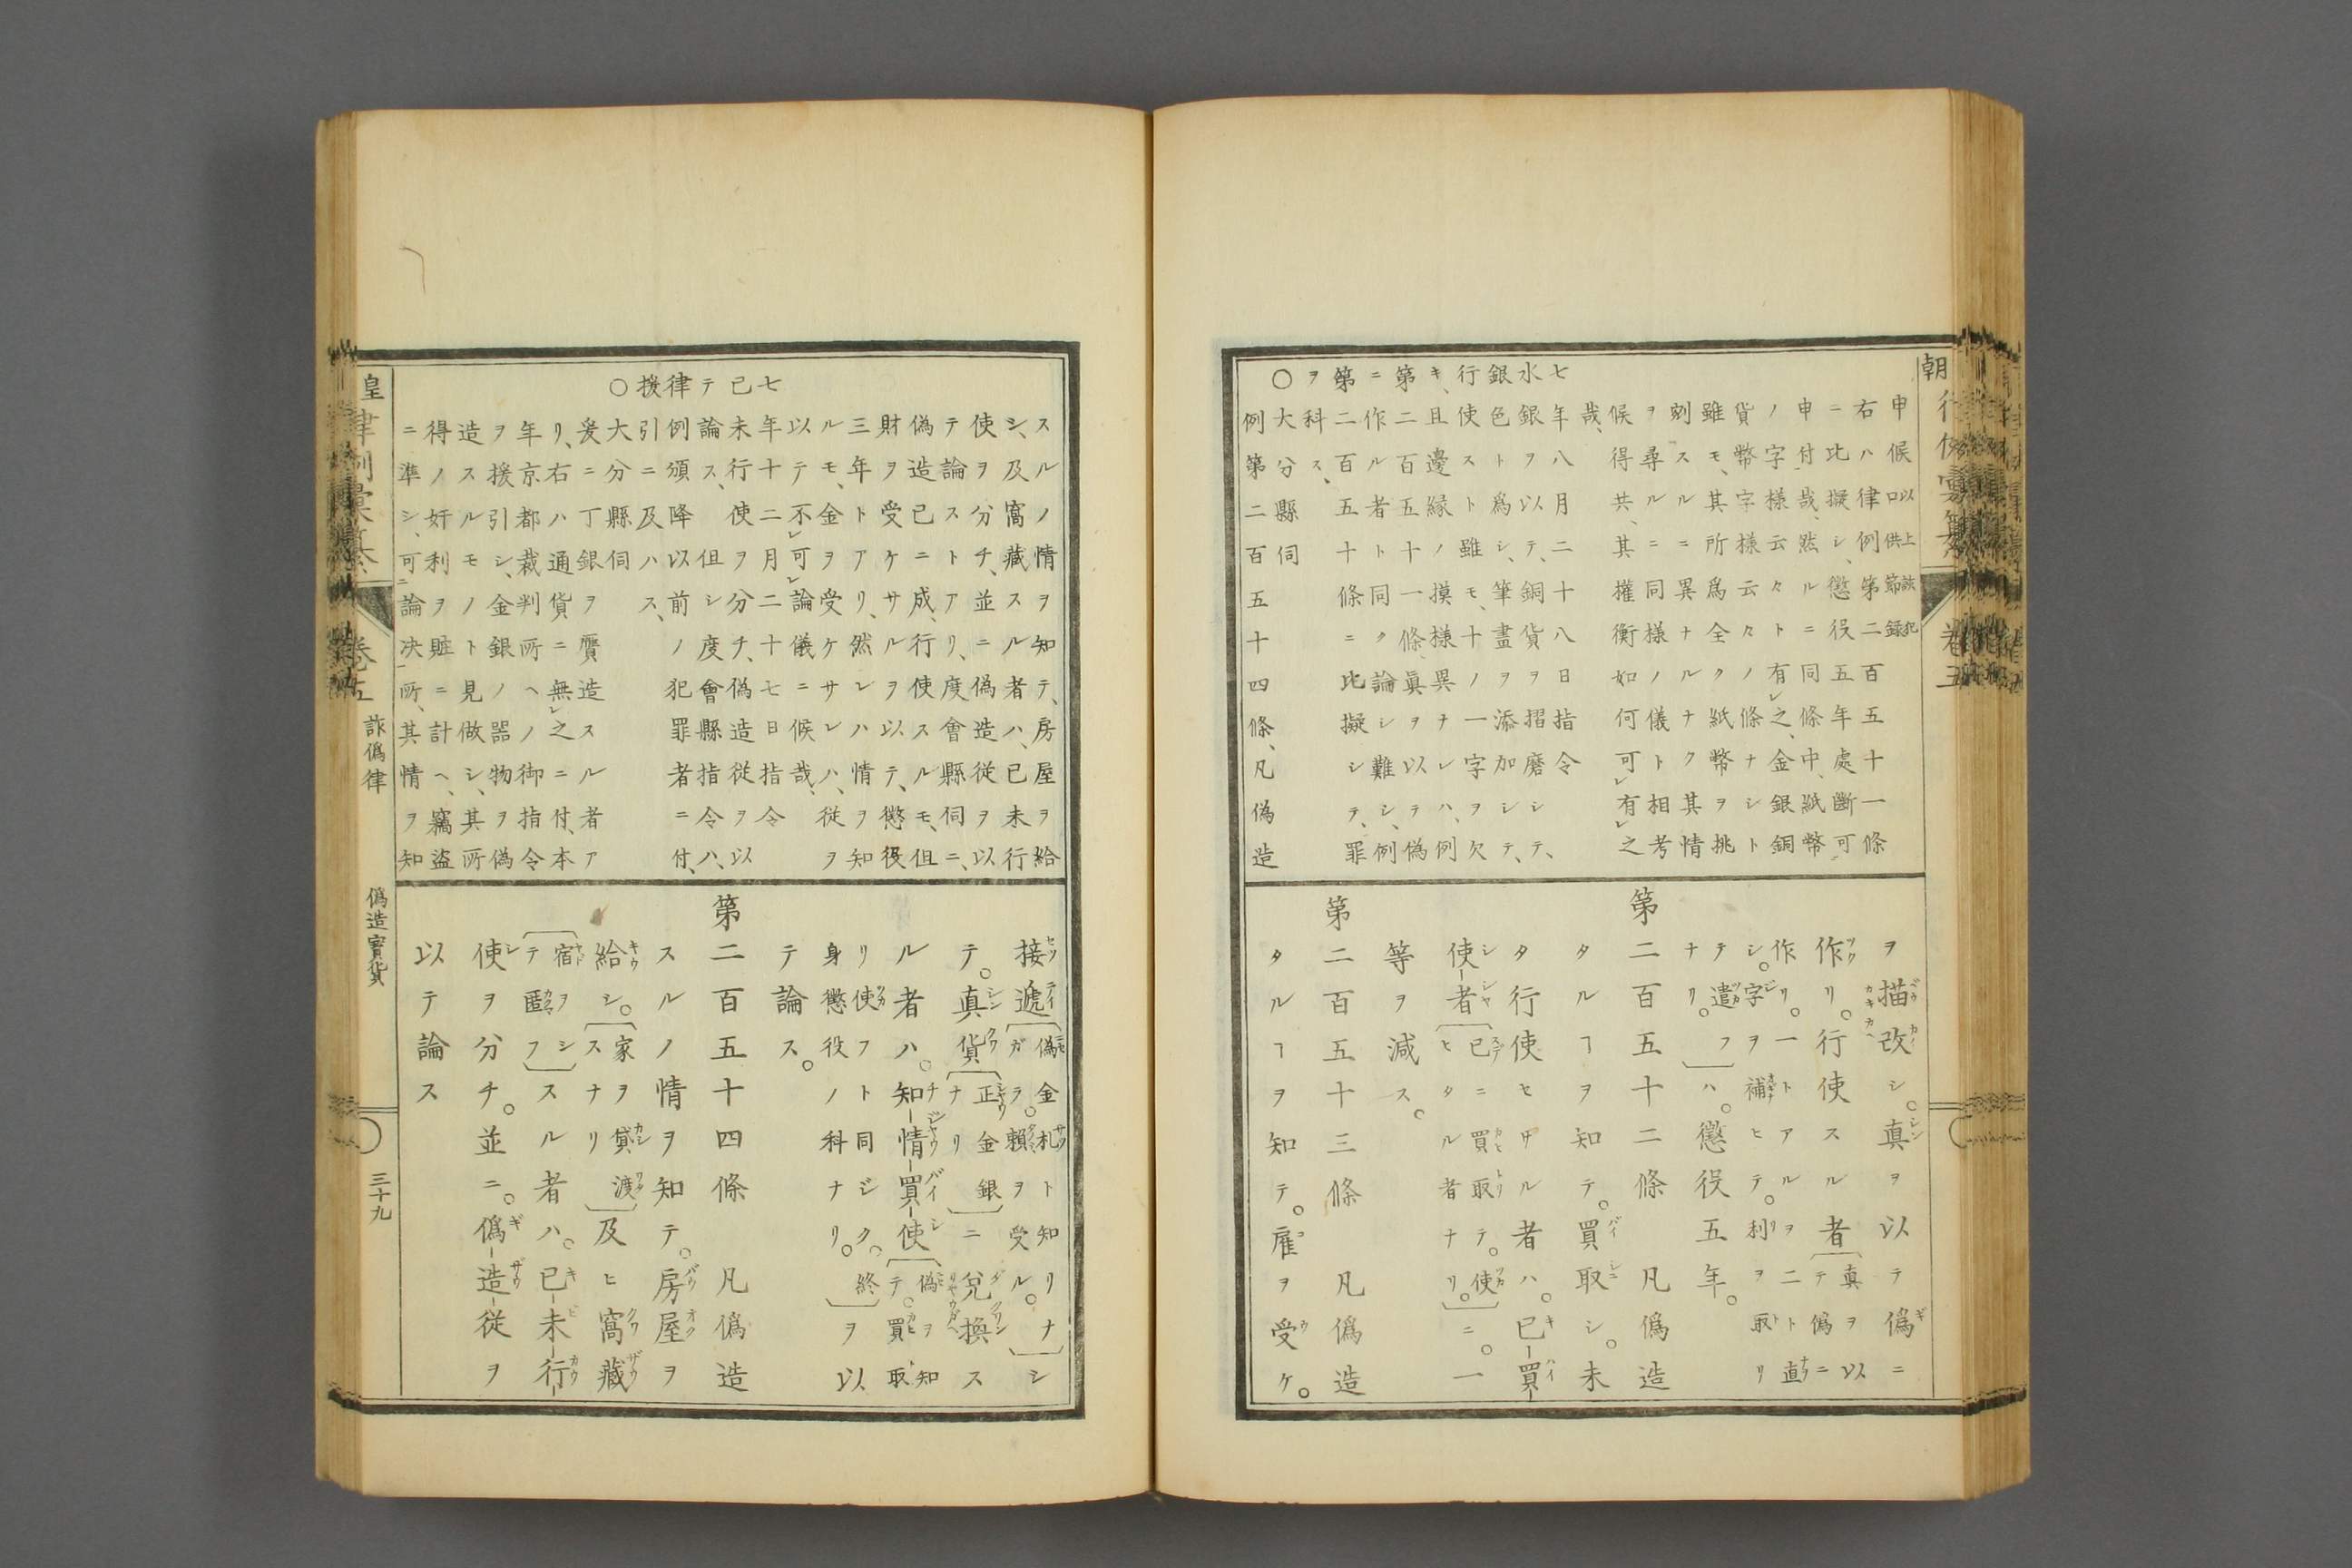 朝
卷五
申候以上該犯口供節録
右ハ律例第二百五十一條
ニ比擬シ、懲役五年處斷可
申付哉、然ルニ同條中、紙幣
ノ字樣云々ト有レ之、金銀銅
貨幣字樣云々ノ條ナシト
雖モ、其所爲全ク紙幣ヲ挑
剜スルニ異ナルナク其情
ヲ尋ルニ同樣ノ儀ト相考
候得共、其權衡如何可レ有レ之
哉、
七年八月二十八日指令
水銀ヲ以テ、銅貨ヲ摺磨シテ、
銀色ト爲シ、筆畫ヲ添加シテ、
行使スト雖モ、十ノ一字ヲ欠
キ、且邊緣ノ摸樣異ナレハ、例
第二百五十一條、眞ヲ以テ偽
ニ作ル者ト同ク論シ難シ、例
第二百五十條ニ比擬シテ、罪
ヲ科ス、
○大分縣伺
例第二百五十四條、凡偽造
ヲ描改シ。真ヲ以テ偽ニ
作リ。行使スル者〔真ヲ以テ偽ニ
作リ。一トアルヲ二ト直シ。字ヲ補ヒテ。利ヲ取リ
テ遣フナリ。〕ハ。懲役五年。
第二百五十二條 凡偽造
タルヿヲ知テ。買取シ。未
タ行使セサル者ハ。已買
使者〔已ニ買取テ。使ヒタル者ナリ。〕ニ。一
等ヲ減ス。
第二百五十三條 凡偽造
タルヿヲ知テ。雇ヲ受ケ。
スルノ情ヲ知テ、房屋ヲ給
シ、及窩藏スル者ハ、已未行
使ヲ分チ、並ニ偽造從ヲ以
テ論ストアリ、度會縣伺ニ、
偽造已ニ成、行使スルモ、但
財ヲ受ケサルヲ以テ、懲役
三年トアリ、然レハ情ヲ知
ルモ、金ヲ受ケサレハ、従ヲ
以テ不レ可レ論儀ニ候哉、
七年十二月二十七日指令
已未行使ヲ分チ、偽造従ヲ以
テ論ス、但シ度會縣指令ハ、
律例頒降以前ノ犯罪者ニ付、
援引ニ及ハス、
○大分縣伺
爰ニ丁銀ヲ贋造スル者ア
リ、右ハ通貨ニ無レ之ニ付、本
年京都裁判所ヘノ御指令
ヲ援引シ、金銀ノ器物ヲ偽
造スルモノト見做シ、其所
得ノ奸利ヲ贓ニ計ヘ、竊盗
ニ準シ、可ニ論決一所、其情ヲ知
接遞〔偽金札ト知リナガラ。頼ヲ受ル。〕シ
テ。真貨〔正金銀ナリ〕ニ兌換ス
ル者ハ。知情買使〔偽ヲ知テ。買取
リ使フト同ジク。終身懲役ノ科ナリ。〕ヲ以
テ論ス。
第二百五十四條 凡偽造
スルノ情ヲ知テ。房屋ヲ
給シ。〔家ヲ貸渡スナリ〕及ヒ窩藏
〔宿ヲシテ匿フ〕スル者ハ。已未行
使ヲ分チ。並ニ。偽造従ヲ
以テ論ス
皇律例彙纂 卷五 詐偽律 偽造寳貨 三十九